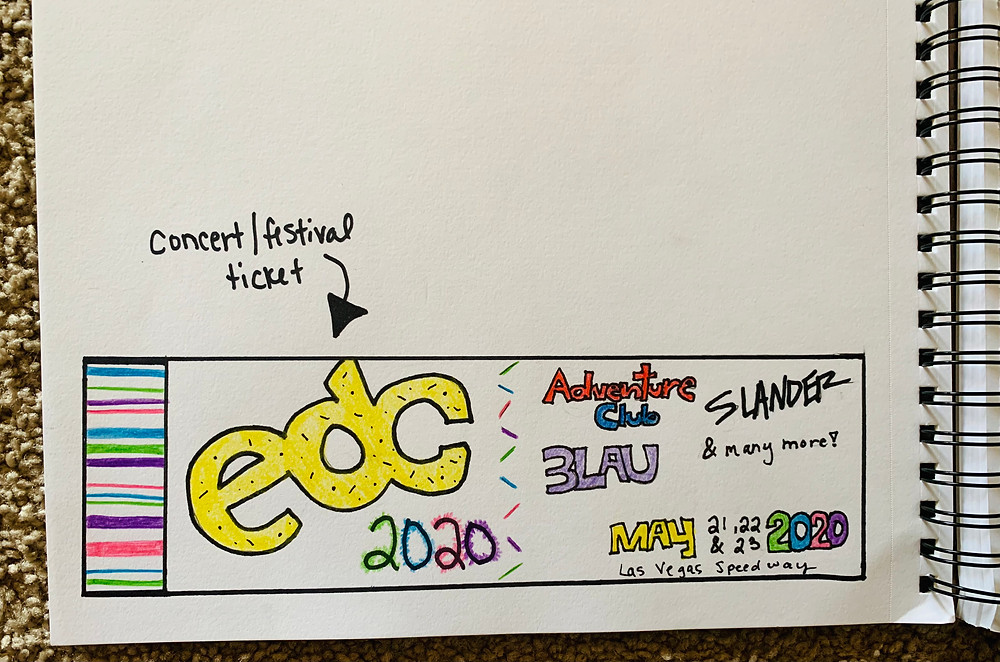 concert/festival
ticket
edc
2020
Adventure
Club
SLANDER
3LAU
& many more!
MAY 21, 22 & 23 2020
Las Vegas Speedway